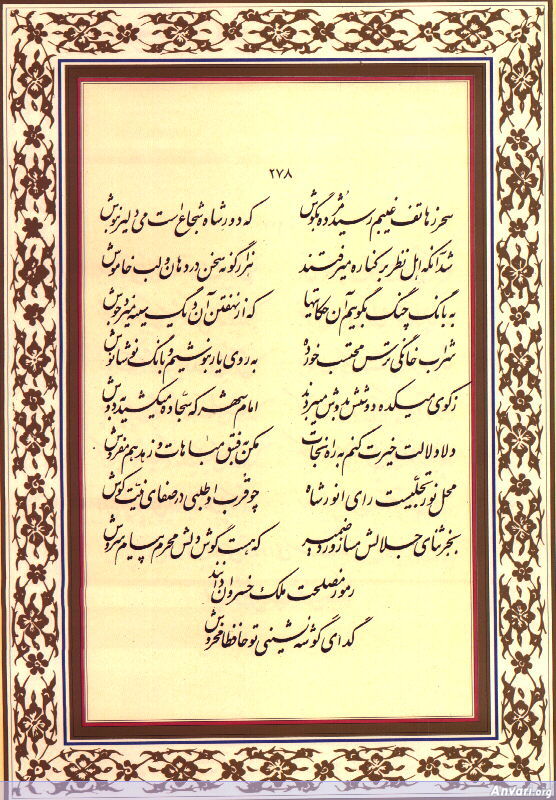 ۲۷۸
سحر ز هاتف غیبم رسید مژده بگوش که دور شاه شجاع است می دلیر بنوش
شد آنکه اهل نظر بر کناره میرفتند هزار گونه سخن در دهان و لب خاموش
به بانگ چنگ بگوییم آن حکایتها که از نهفتن آن دیگ سینه میزد جوش
شراب خانگی ترس محتسب خورده به روی یار بنوشیم و بانگ نوشانوش
ز کوی میکده دوشش بدوش میبردند امام شهر که سجّاده میکشید بدوش
دلا دلالت خیرت کنم به راه نجات مکن به فسق مباهات و زهد هم مفروش
محل نور تجلّیست رای انور شاه چو قرب او طلبی در صفای نیّت کوش
بجز ثنای جلالش مساز ورد ضمیر که هست گوش دلش محرم پیام سروش
رموز مصلحت ملک خسروان دانند
گدای گوشه نشینی تو حافظا مخروش
Anvari.org